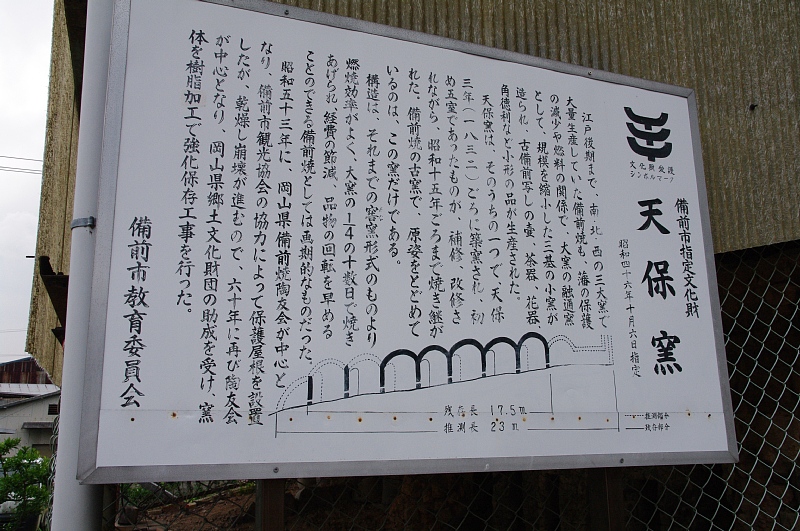 備前市指定文化財
天保窯
昭和四十六年十月六日指定
文化財愛護
シンボルマーク
江戸後期まで、南・北・西の三大窯で
大量生産していた備前焼も、藩の保護
の減少や燃料の関係で、大窯の融通窯
として、規模を縮小した三基の小窯が
造られ、古備前写しの壷、茶器、花器、
角徳利など小形の品が生産された。
天保窯は、そのうちの一つで、天保
三年(一八三二)ごろに築窯され、初
め五室であったものが、補修、改修さ
れながら、昭和十五年ごろまで焼き継が
れた。備前焼の古窯で、原姿をとどめて
いるのは、この窯だけである。
構造は、それまでの窖窯形式のものより
燃焼効率がよく、大窯の1/4の十数日で焼き
あげられ、経費の節減、品物の回転を早める
ことのできる備前焼としては画期的なものだった。
昭和五十三年に、岡山県備前焼陶友会が中心と
なり、備前市観光協会の協力によって保護屋根を設置
したが、乾燥し崩壊が進むので、六十年に再び陶友会
が中心となり、岡山県郷土文化財団の助成を受け、窯
体を樹脂加工で強化保存工事を行った。
備前市教育委員会
残存長 17.5m
推測長 23m
推測部分
残存部分